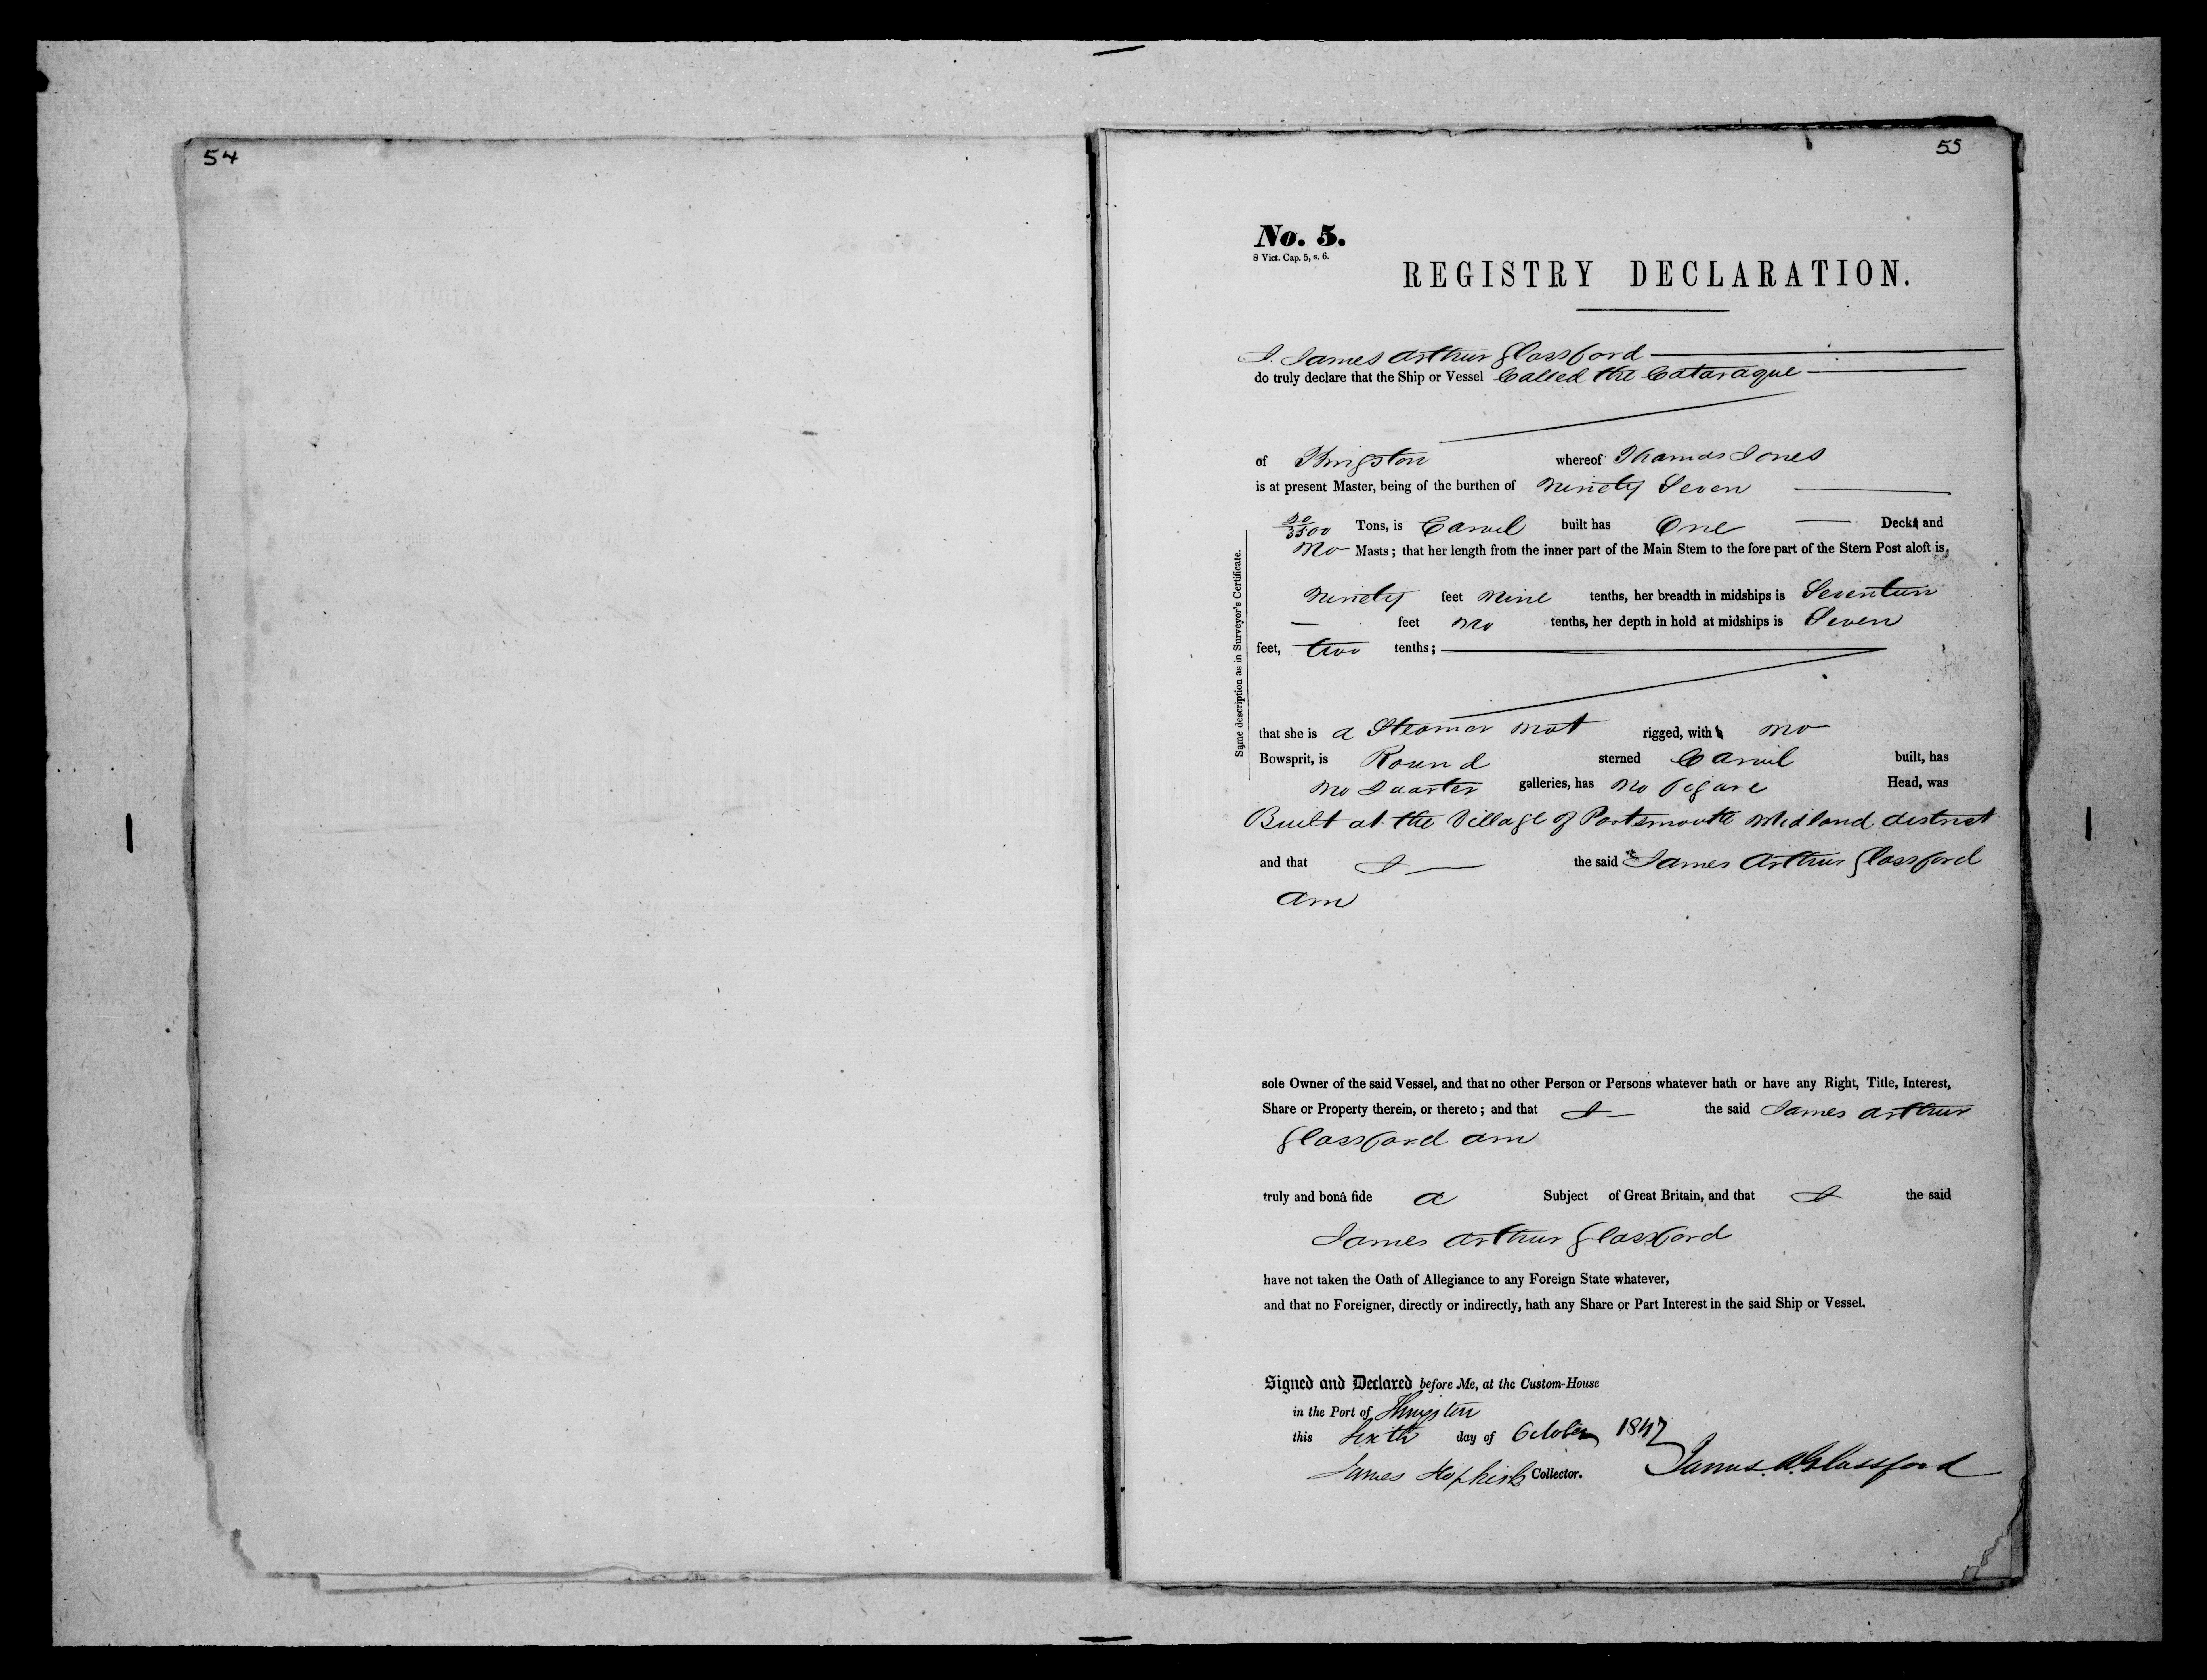 54
55
No. 5.
8 Vict. Cap. 5, s. 6.
REGISTRY DECLARATION.
I James Arthur Glassford
do truly declare that the Ship or Vessel Called the Cataraque
of Kingston whereof Thomas Jones
is at present Master, being of the burthen of Ninety Seven
50/3500 Tons, is Carvel built has One Deck and
No Masts; that her length from the inner part of the Main Stem to the fore part of the Stern Post aloft is,
Ninety feet Nine tenths, her breadth in midships is Seventeen
feet No tenths, her depth in hold at midships is Seven
feet, two tenths;
Same description as in Surveyor's Certificate.
that she is a Steamer Not rigged, with No
Bowsprit, is Round sterned Carvel built, has
No Quarter galleries, has No figure Head, was
Built at the Village of Portsmouth Midland district
and that I the said James Arthur Glassford
am
sole Owner of the said Vessel, and that no other Person or Persons whatever hath or have any Right, Title, Interest,
Share or Property therein, or thereto; and that I the said James Arthur
Glassford am
truly and bonâ fide a Subject of Great Britain, and that I the said
James Arthur Glassford
have not taken the Oath of Allegiance to any Foreign State whatever,
and that no Foreigner, directly or indirectly, hath any Share or Part Interest in the said Ship or Vessel.
Signed and Declared before Me, at the Custom-House
in the Port of Kingston
this Sixth day of October 1847
James Hopkirk Collector. James A. Glassford